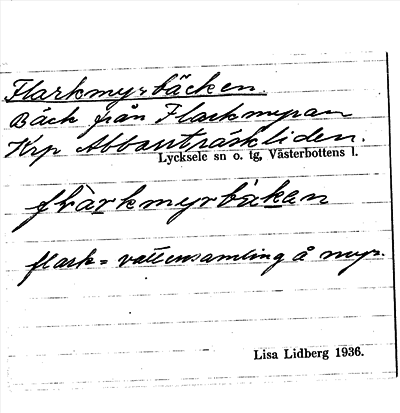 Flarkmyrbäcken.
Bäck från Flarkmyran
Krp Abborrträskliden.
Lycksele sn o. tg, Västerbottens l.
flark = vattensamling å myr.
Lisa Lidberg 1936.